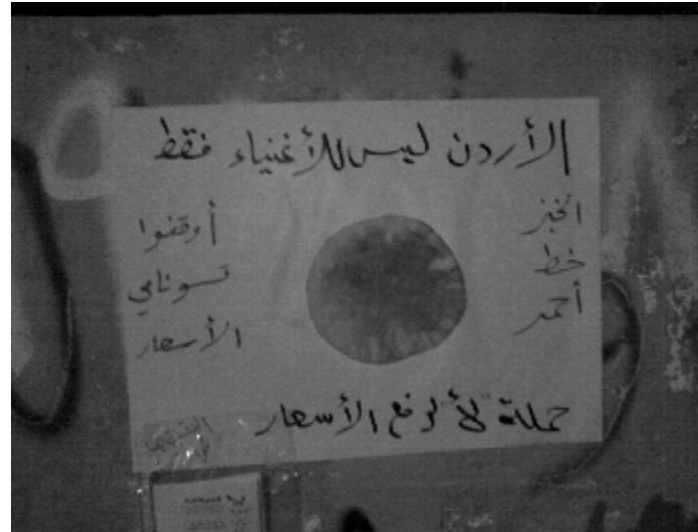 الأردن ليس للأغنياء فقط
الخبز
خط
أحمر
أوقفوا
تسونامي
الأسعار
حملة "لأ" لرفع الأسعار